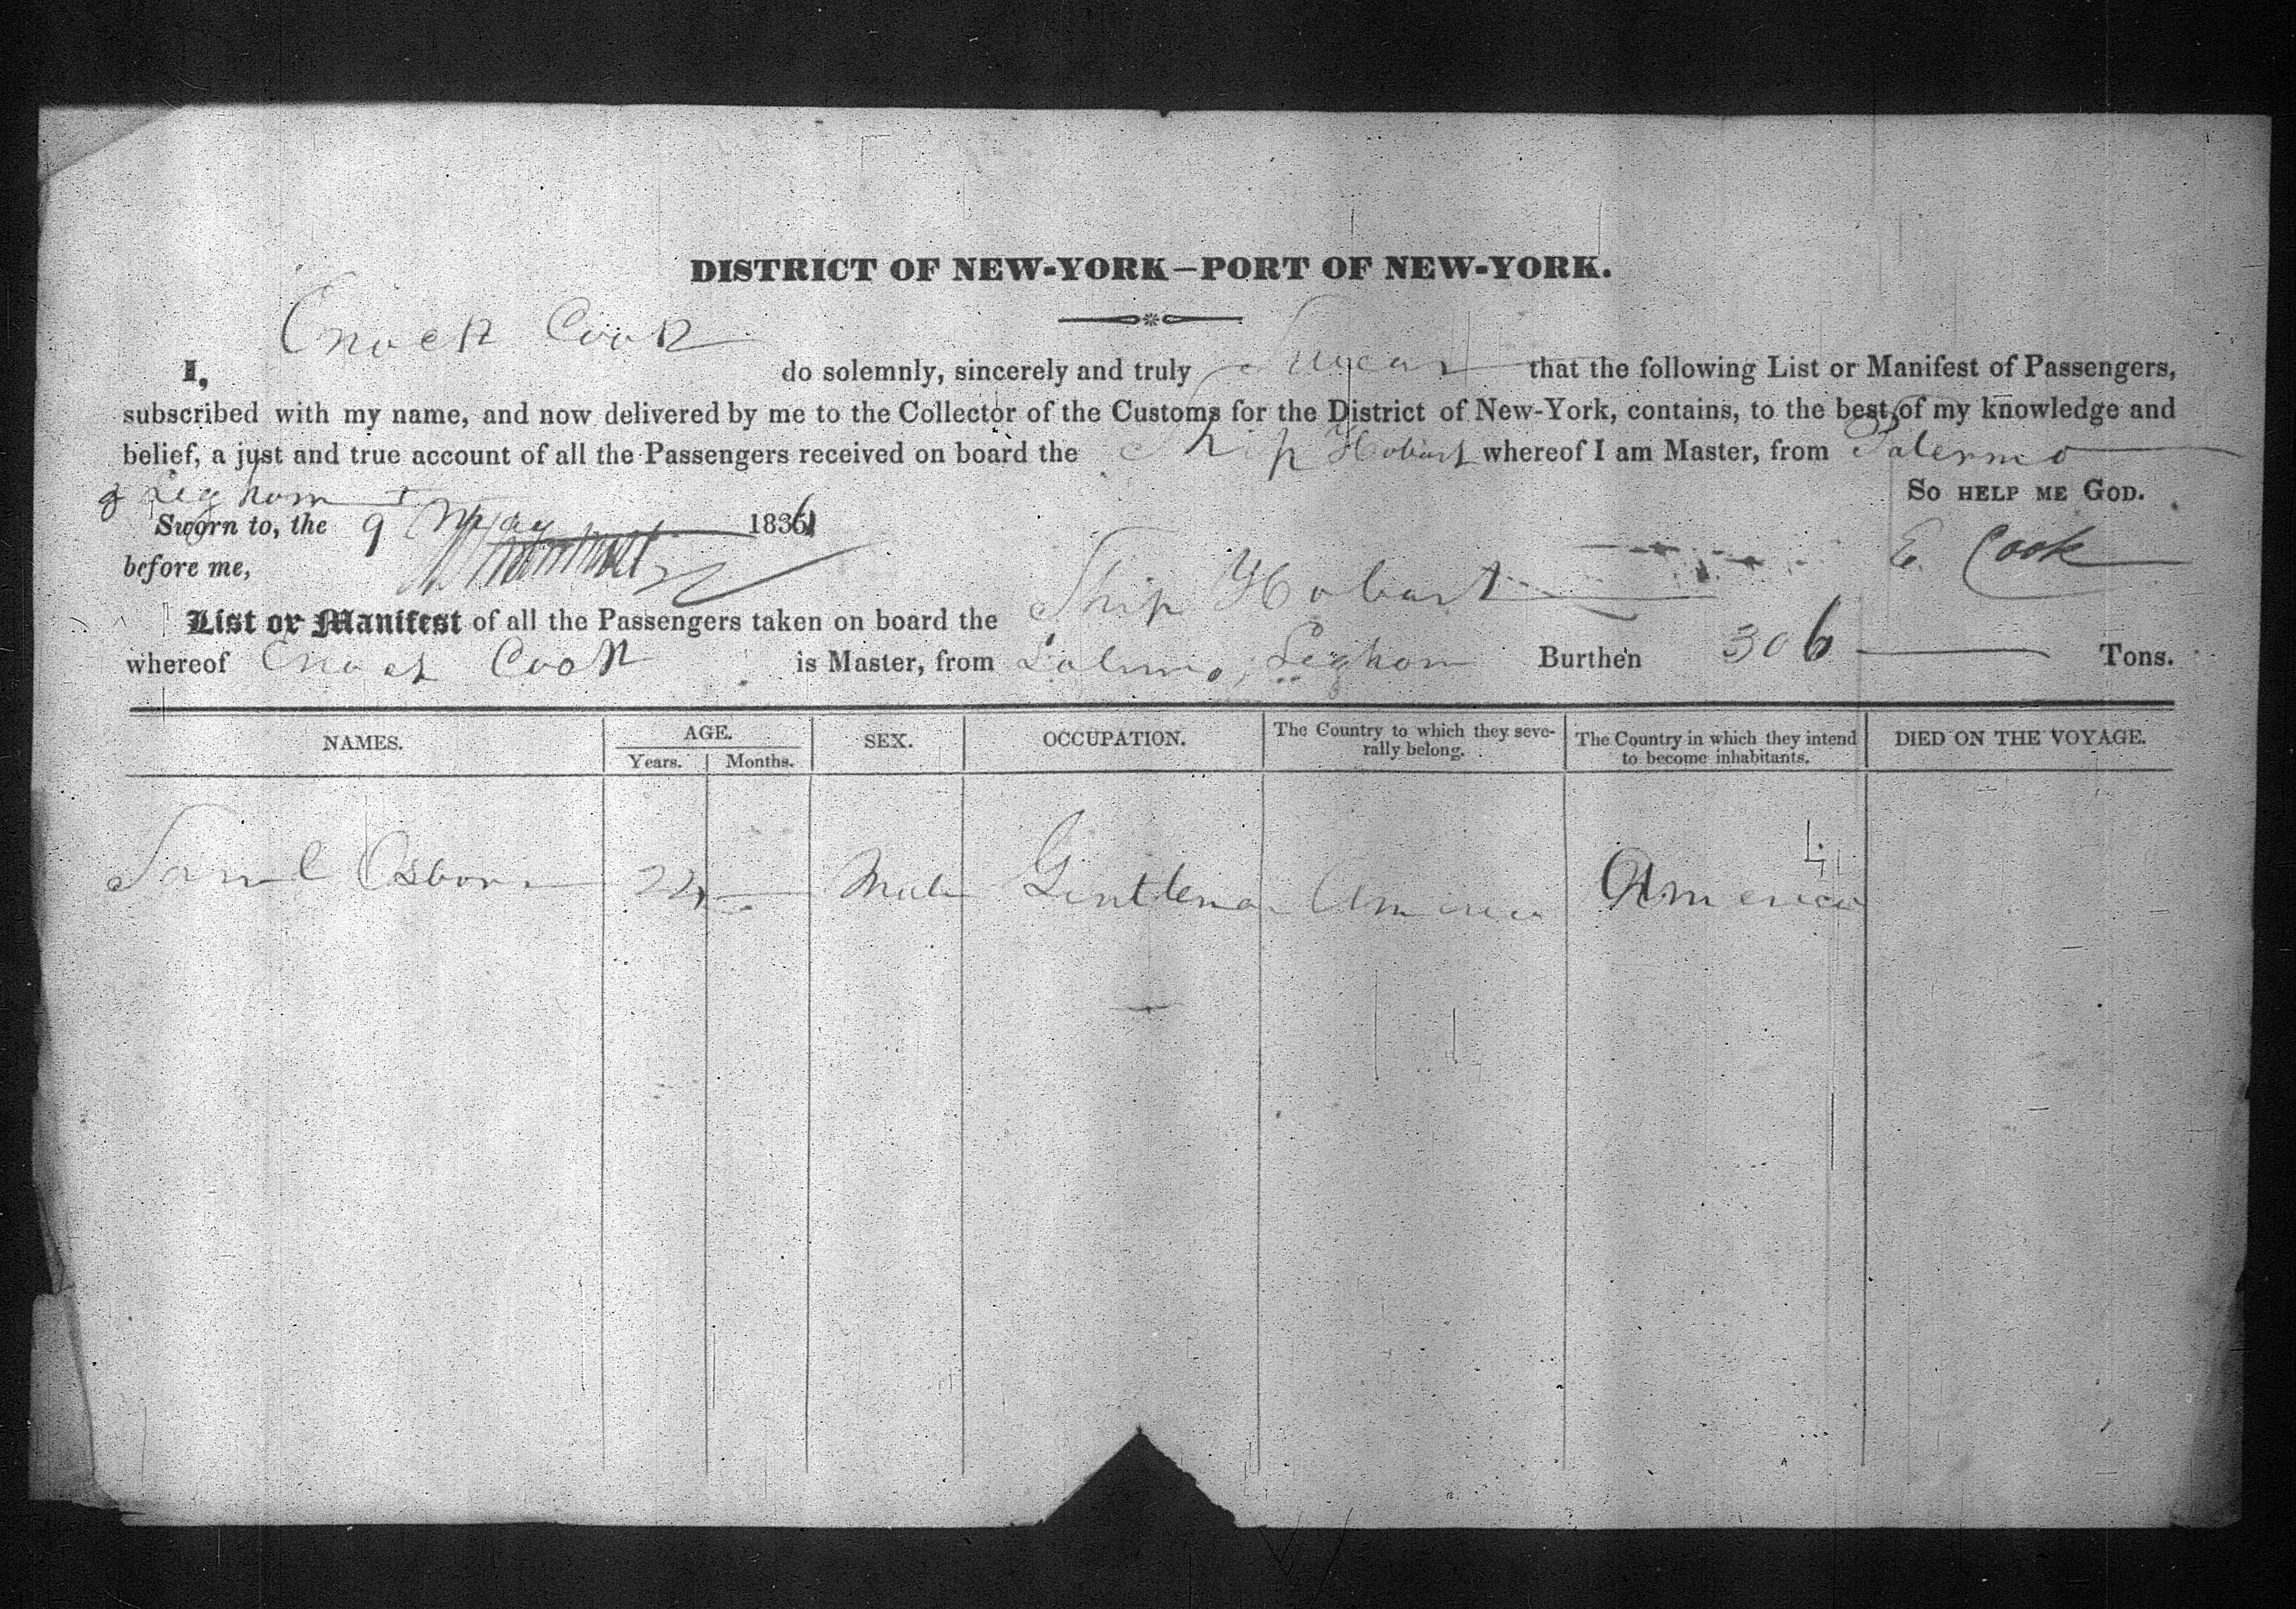 DISTRICT OF NEW-YORK—PORT OF NEW-YORK.
I, Enoch Cook do solemnly, sincerely and truly Swear that the following List or Manifest of Passengers,
subscribed with my name, and now delivered by me to the Collector of the Customs for the District of New-York, contains, to the best of my knowledge and
belief, a just and true account of all the Passengers received on board the Ship Hobart whereof I am Master, from Palermo
& Leghorn SO HELP ME GOD.
Sworn to, the 9 May 1836
before me, E Cook
List or Manifest of all the Passengers taken on board the Ship Hobart
whereof Enoch Cook is Master, from Palermo, Leghorn Burthen 306 Tons.
NAMES. AGE. Years. Months. SEX. OCCUPATION. The Country to which they severally belong. The Country in which they intend to become inhabitants. DIED ON THE VOYAGE.
Saml Osborn 22 — Male Gentleman America America